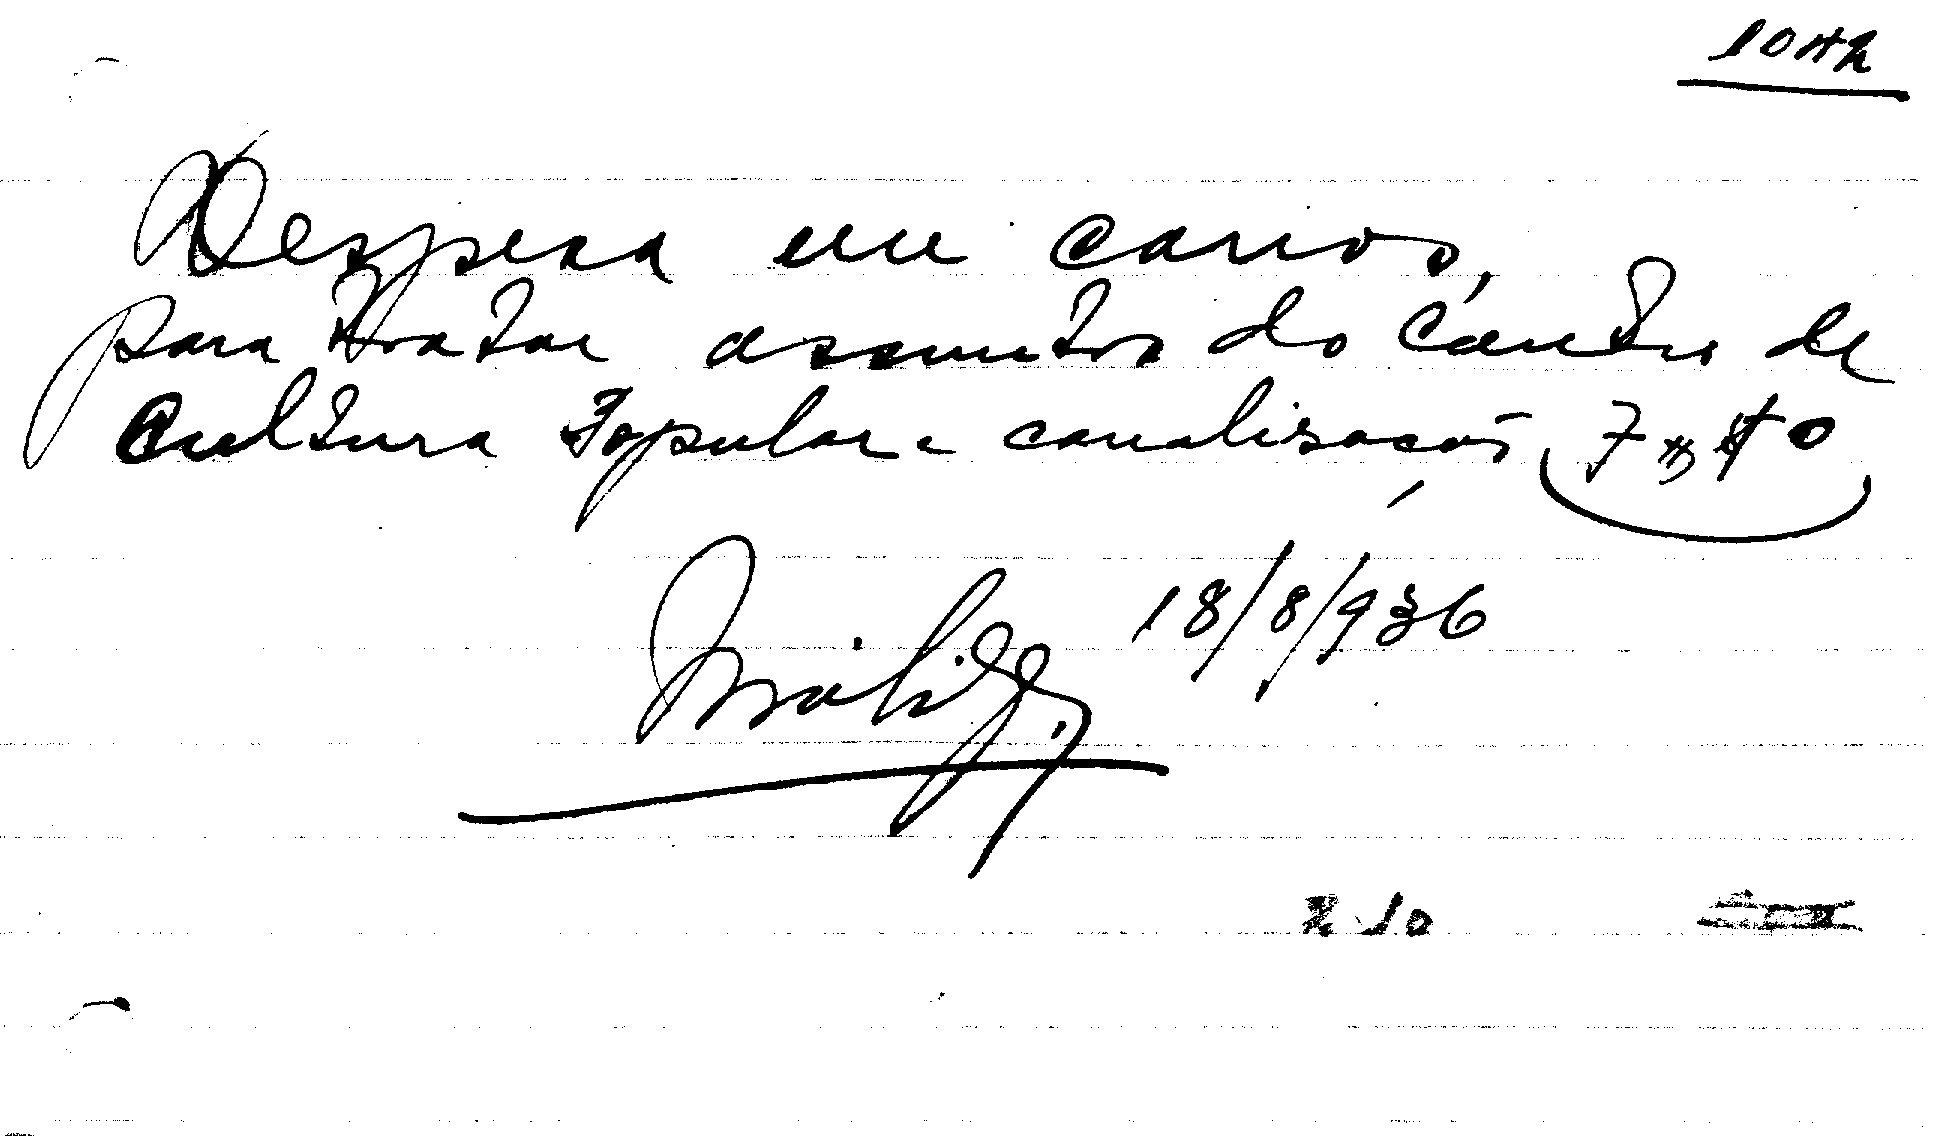 1042
Despesa em carros,
para tratar assuntos do Centro de
Cultura Popular e canalisação 7 $ 0
18/8/936
210